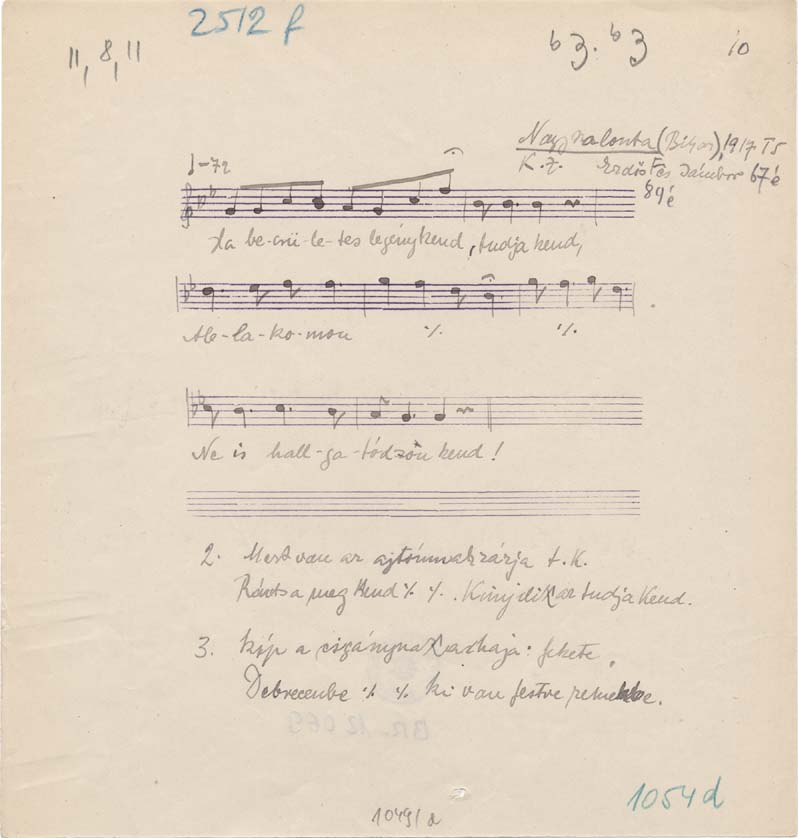 2512 f
11, 8, 11
b3. b3
10
Nagyszalonta (Bihar), 1917 TS
K. Z. Erdős Fes Sándor 67é
84é
♩=72
Ha be-csü-le-tes legény kend, tudja kend,
Ab-la-ko-mon ٪ ٪
Ne is hall-ga-tódzon kend!
2. Mert van az ajtómnak zárja t. K.
Rántsa meg Kend ٪ ٪. Kinyidlik az tudja Kend.
3. Kép a cigánynak a haja: fekete,
Debrecenbe ٪ ٪ ki van festve
BR. 12 069
1049/a
1054 d